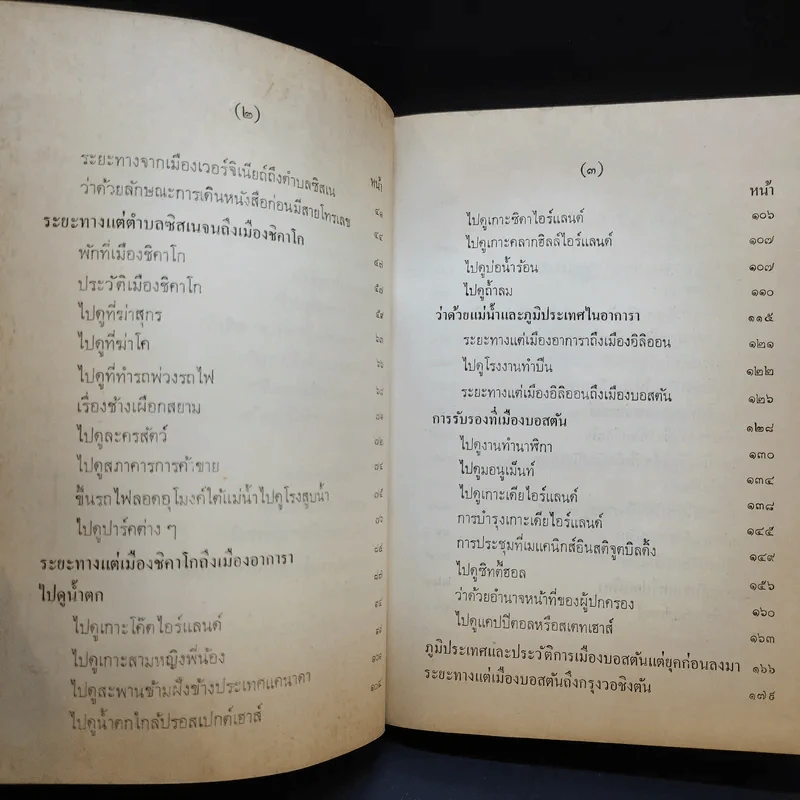 (๒)
หน้า
ระยะทางจากเมืองเวอร์จิเนียถึงตำบลซิสเน ๔๑
ว่าด้วยลักษณะการเดินหนังสือก่อนมีสายโทรเลข ๔๔
ระยะทางแต่ตำบลซิสเนจนถึงเมืองชิคาโก
พักที่เมืองชิคาโก ๕๗
ประวัติเมืองชิคาโก ๕๙
ไปดูที่ฆ่าสุกร ๖๓
ไปดูที่ฆ่าโค
ไปดูที่ทำรถพ่วงรถไฟ ๖๘
เรื่องช้างเผือกสยาม
ไปดูละครสัตว์ ๘๒
ไปดูสภาคารการค้าขาย ๘๔
ขึ้นรถไฟลอดอุโมงค์ใต้แม่น้ำไปดูโรงสูบน้ำ ๘๕
ไปดูปาร์คต่าง ๆ ๘๖
ระยะทางแต่เมืองชิคาโกถึงเมืองอาการา
ไปดูน้ำตก
ไปดูเกาะโค๊ตไอร์แลนด์
ไปดูเกาะสามหญิงพี่น้อง
ไปดูสะพานข้ามฝั่งข้างประเทศแคนาดา
ไปดูน้ำตกใกล้ปรอสเปกต์เฮาส์
(๓)
หน้า
ไปดูเกาะซิคาไอร์แลนด์ ๑๐๖
ไปดูเกาะคลากฮิลล์ไอร์แลนด์ ๑๐๗
ไปดูบ่อน้ำร้อน ๑๐๗
ไปดูถ้ำลม ๑๑๐
ว่าด้วยแม่น้ำและภูมิประเทศในอาการา ๑๑๕
ระยะทางแต่เมืองอาการาถึงเมืองอิลิออน ๑๒๑
ไปดูโรงงานทำปืน ๑๒๒
ระยะทางแต่เมืองอิลิออนถึงเมืองบอสตัน ๑๒๖
การรับรองที่เมืองบอสตัน ๑๒๘
ไปดูงานทำนาฬิกา ๑๓๐
ไปดูมอนูเม็นท์ ๑๓๔
ไปดูเกาะเดียไอร์แลนด์ ๑๓๘
การบำรุงเกาะเดียไอร์แลนด์ ๑๔๕
การประชุมที่เมแคนิกส์อินสติจูตบิลดิ้ง ๑๔๙
ไปดูซิทตี้ฮอล ๑๕๖
ว่าด้วยอำนาจหน้าที่ของผู้ปกครอง ๑๖๐
ไปดูแคปปิตอลหรือสเตทเฮาส์ ๑๖๓
ภูมิประเทศและประวัติการเมืองบอสตันแต่ยุคก่อนลงมา ๑๖๖
ระยะทางแต่เมืองบอสตันถึงกรุงวอชิงตัน ๑๗๙